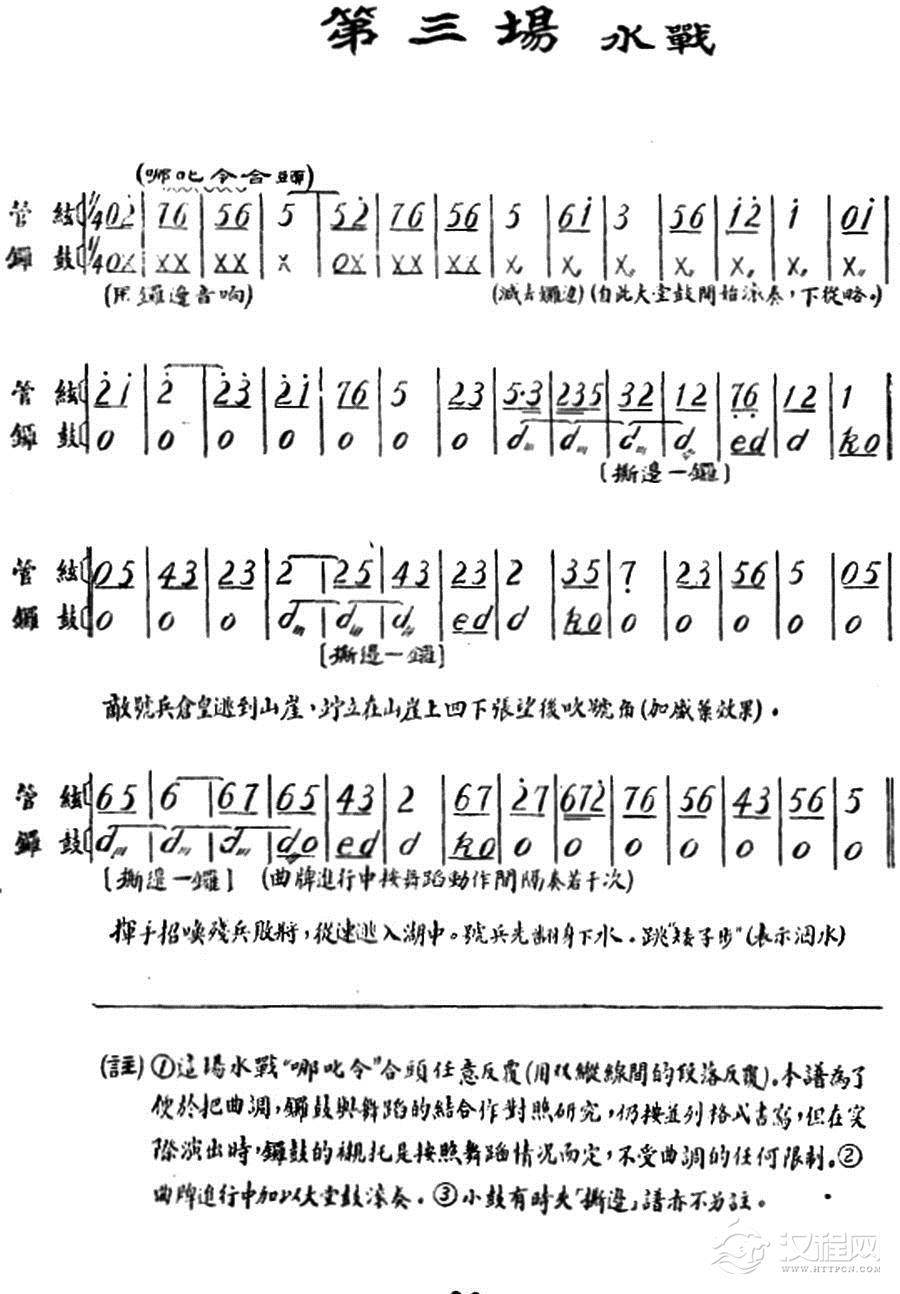 第三場 水戰
(哪叱令合頭)
管絃 1/4 0 2̇ | 7 6 | 5 6 | 5 | 5 2̇ | 7 6 | 5 6 | 5 | 6 i̇ | 3 | 5 6 | i̇ 2̇ | i̇ | 0 i̇ |
鑼鼓 1/4 0 X | X X | X X | X | 0 X | X X | X X | X。 | X。 | X。 | X。 | X。 | X。 | X。 |
(用鑼邊音响) (減去鑼边)(自此大堂鼓開始滾奏，下從略。)
管絃 2̇ i̇ | 2̇ | 2̇ 3̇ | 2̇ i̇ | 7 6 | 5 | 2 3 | 5·3 | 2 3 5 | 3 2 | 1 2 | 7̣ 6̣ | 1 2 | 1 |
鑼鼓 0 | 0 | 0 | 0 | 0 | 0 | 0 | d | d | d | d | e d | d | k o |
[撕邊一鑼]
管絃 0 5 | 4 3 | 2 3 | 2 | 2 5 | 4 3 | 2 3 | 2 | 3 5 | 7̣ | 2 3 | 5 6 | 5 | 0 5 |
鑼鼓 0 | 0 | 0 | d | d | d | e d | d | k o | 0 | 0 | 0 | 0 | 0 |
[撕邊一鑼]
敵號兵倉皇逃到山崖，竚立在山崖上四下張望後吹號角(加感葉效果)。
管絃 6 5 | 6 | 6 7 | 6 5 | 4 3 | 2 | 6 7 | 2̇ 7 | 6 7 2̇ | 7 6 | 5 6 | 4 3 | 5 6 | 5 ‖
鑼鼓 d | d | d | d o | e d | d | k o | 0 | 0 | 0 | 0 | 0 | 0 | 0 ‖
[撕邊一鑼] (曲牌進行中按舞蹈動作間隔奏若干次)
揮手招喚殘兵敗將，從速逃入湖中。號兵先翻身下水．跳"矮子步"(表示泅水)
(註)①這場水戰"哪叱令"合頭任意反覆(用双縱線間的段落反覆)．本譜為了
便於把曲調，鑼鼓與舞蹈的結合作對照研究，仍按並列格式書寫，但在实
際演出時，鑼鼓的襯托是按照舞蹈情况而定，不受曲調的任何限制．②
曲牌進行中加以大堂鼓滾奏．③小鼓有時夾「撕邊」譜亦不另註。
汉程网
WWW.HTTPCN.COM